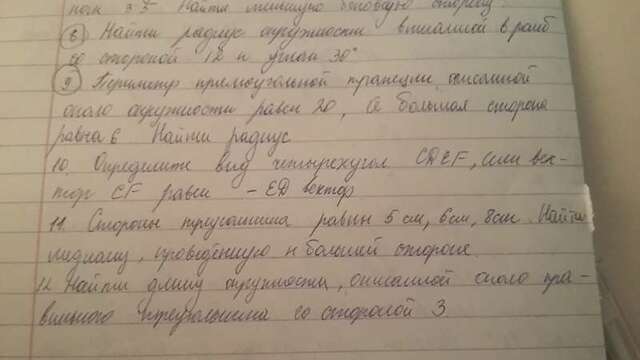 Найти
8 Найти радиус окружности вписанной в ромб
со стороной 12 и углом 30°
9 Периметр прямоугольной трапеции, описанной
около окружности равен 20, а большая сторона
равна 6 Найти радиус
10. Определите вид четырехугол. CDEF, если век-
тор CF равен - ED вектор
11. Стороны треугольника равны 5 см, 6 см, 8 см. Найти
медиану, проведённую к большей стороне
12 Найти длину окружности, описанной около пра-
вильного треугольника со стороной 3